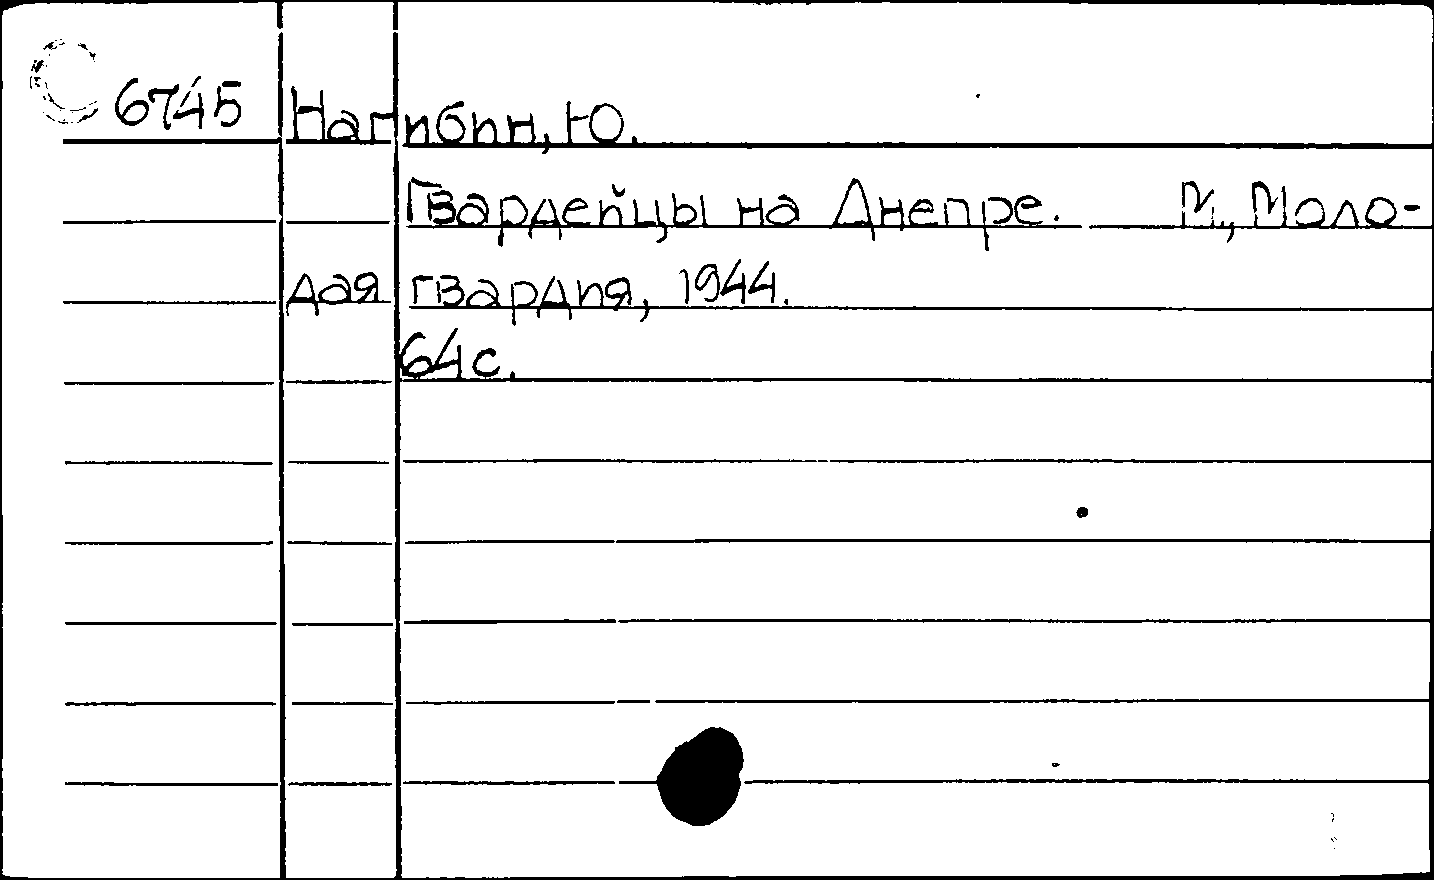 6745 Нагибин, Ю.
Гвардейцы на Днепре. М., Моло-
дая гвардия, 1944.
64 с.